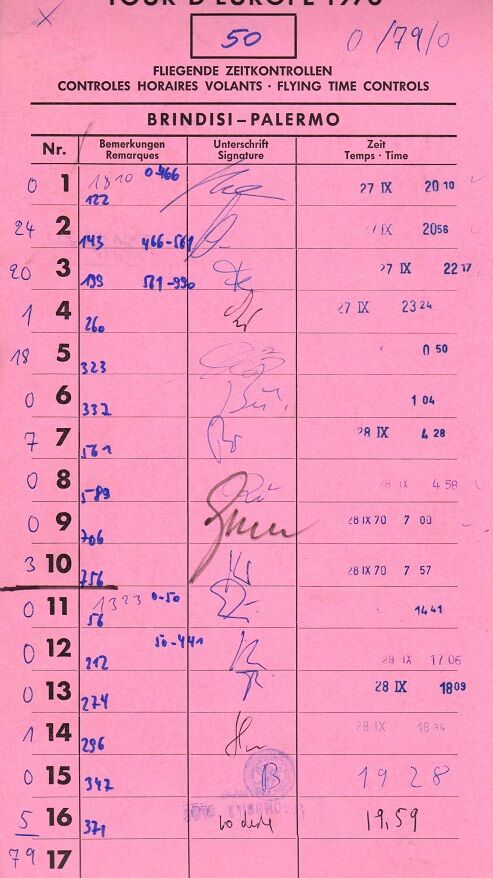 TOUR D'EUROPE 1970
X
50
0/79/0
FLIEGENDE ZEITKONTROLLEN
CONTROLES HORAIRES VOLANTS · FLYING TIME CONTROLS
BRINDISI – PALERMO
Nr. Bemerkungen Unterschrift Zeit
Remarques Signature Temps · Time
0 1 1810 0-466 122 27 IX 20 10
24 2 143 466-561 IX 20 56
20 3 199 561-990 27 IX 22 17
1 4 260 27 IX 23 24
18 5 323 0 50
0 6 332 1 04
7 7 561 28 IX 4 28
0 8 589 28 IX 4 58
0 9 706 28 IX 70 7 00
3 10 756 28 IX 70 7 57
0 11 1323 0-50 56 14 41
0 12 50-441 212 28 IX 17 06
0 13 274 28 IX 18 09
1 14 296 28 IX 18 34
0 15 347 B 19 28
5 16 371 19,59
79 17